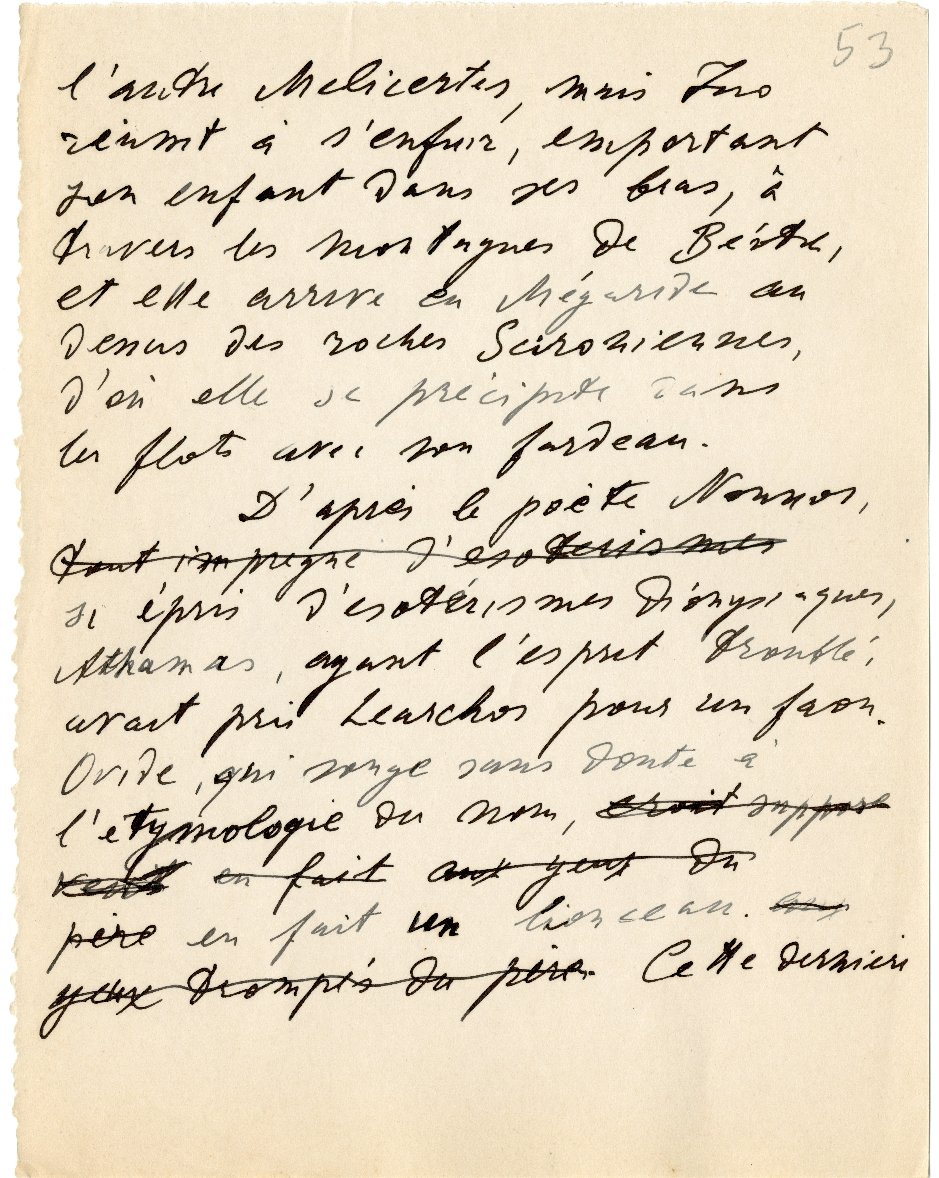 53
l'autre Melicertès, mais Ino
réussit à s'enfuir, emportant
son enfant dans ses bras, à
travers les montagnes de Béotie,
et elle arrive en Mégaride au
dessus des roches Scironiennes,
d'où elle se précipite dans
les flots avec son fardeau.
D'après le poète Nonnos,
tout impregne d'esoterismes
si épris d'esotérismes dionysiaques,
Athamas, ayant l'esprit troublé,
avait pris Learchos pour un faon.
Ovide, qui songe sans doute à
l'etymologie du nom, croit suppose
veut en fait aux yeux du
père en fait un lionceau. aux
yeux trompés du père. Cette derniere